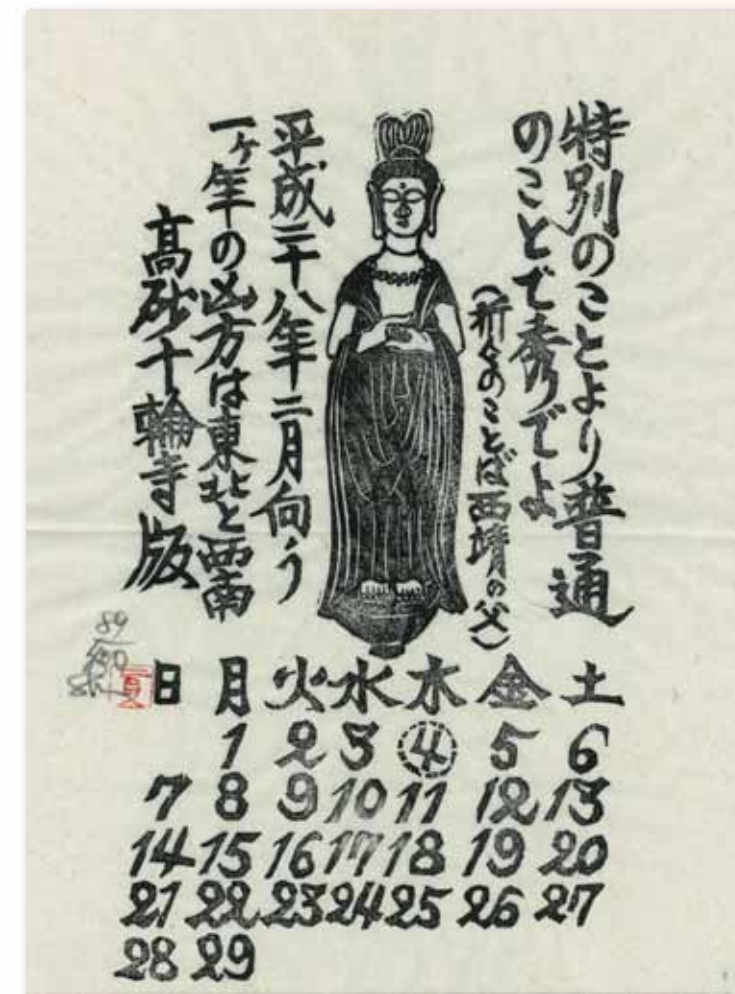 特別のことより普通
のことで秀りでよ
(祈りのことば西靖の父)
平成二十八年二月向う
一ヶ年の凶方は東北と西南
高砂十輪寺版
日 月 火 水 木 金 土
1 2 3 4 5 6
7 8 9 10 11 12 13
14 15 16 17 18 19 20
21 22 23 24 25 26 27
28 29
89